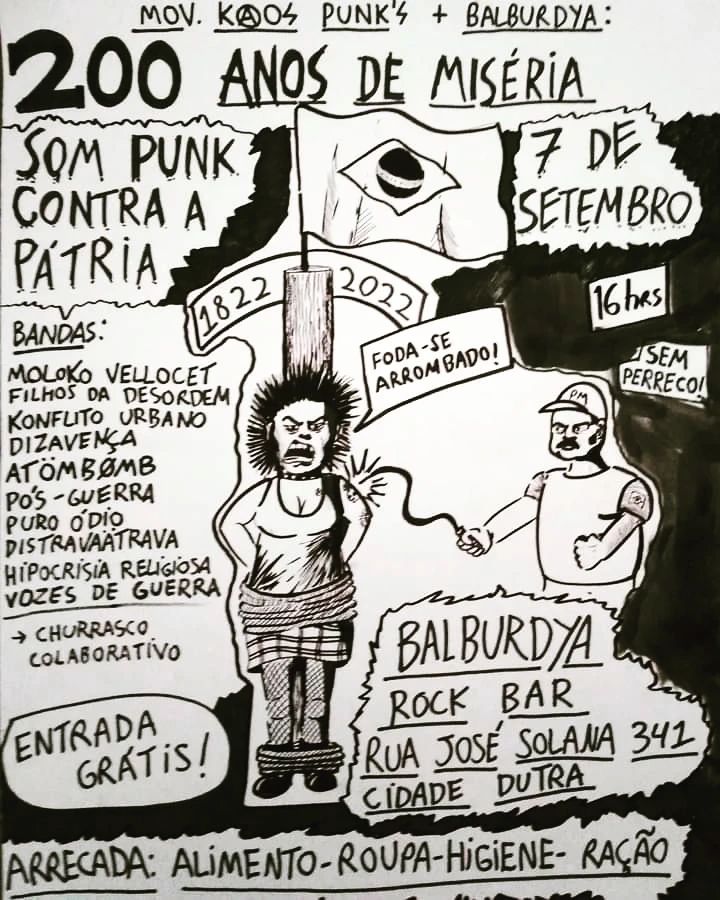 MOV. KAOS PUNK'S + BALBURDYA:
200 ANOS DE MISÉRIA
SOM PUNK
CONTRA A
PÁTRIA
7 DE
SETEMBRO
1822 2022
16 hrs
SEM
PERRECO!
FODA-SE
ARROMBADO!
PM
BANDAS:
MOLOKO VELLOCET
FILHOS DA DESORDEM
KONFLITO URBANO
DIZAVENÇA
ATÖMBØMB
PÓS-GUERRA
PURO ÓDIO
DISTRAVAÄTRAVA
HIPOCRISIA RELIGIOSA
VOZES DE GUERRA
→ CHURRASCO
COLABORATIVO
ENTRADA
GRÁTIS!
BALBURDYA
ROCK BAR
RUA JOSÉ SOLANA 341
CIDADE DUTRA
ARRECADA: ALIMENTO-ROUPA-HIGIENE-RAÇÃO